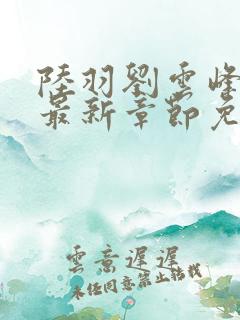 陸羽劉雲峰
最新章節免
雲意遲遲
未经同意禁止转载